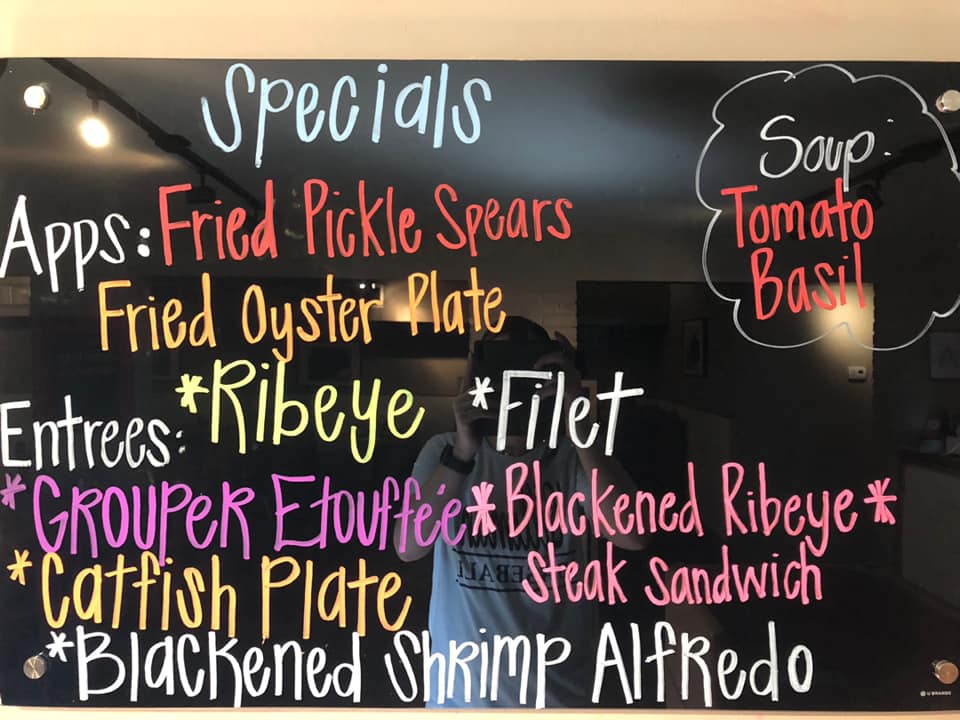 Specials
Soup:
Tomato
Basil
Apps: Fried Pickle Spears
Fried Oyster Plate
Entrees: *Ribeye *Filet
*Grouper Etouffée *Blackened Ribeye*
Steak Sandwich
*Catfish Plate
*Blackened Shrimp Alfredo
U BRANDS